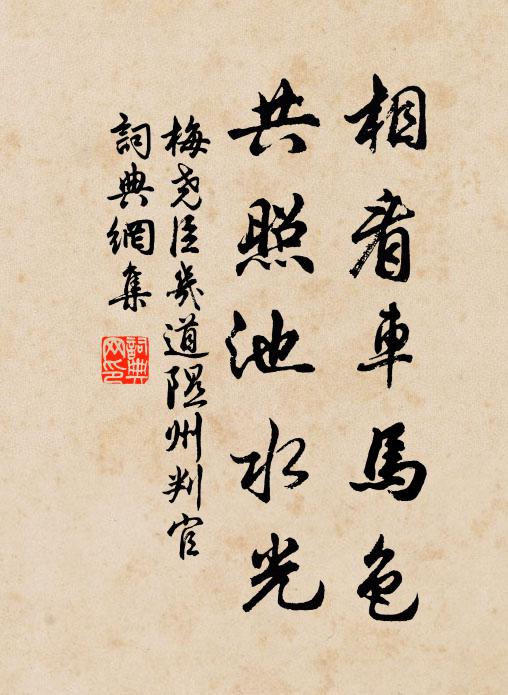 相看車馬色
共照池水光
梅堯臣幾道隰州判官
詞典網集
詞典
网印